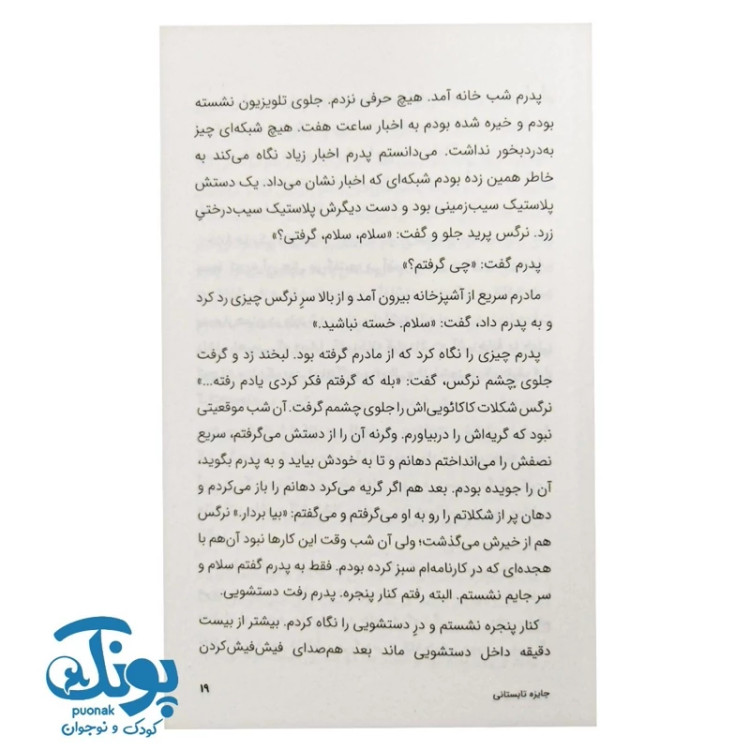 پدرم شب خانه آمد. هیچ حرفی نزدم. جلوی تلویزیون نشسته
بودم و خیره شده بودم به اخبار ساعت هفت. هیچ شبکه‌ای چیز
به‌دردبخور نداشت. می‌دانستم پدرم اخبار زیاد نگاه می‌کند به
خاطر همین زده بودم شبکه‌ای که اخبار نشان می‌داد. یک دستش
پلاستیک سیب‌زمینی بود و دست دیگرش پلاستیک سیب‌درختیِ
زرد. نرگس پرید جلو و گفت: «سلام، سلام، گرفتی؟»
پدرم گفت: «چی گرفتم؟»
مادرم سریع از آشپزخانه بیرون آمد و از بالا سرِ نرگس چیزی رد کرد
و به پدرم داد، گفت: «سلام. خسته نباشید.»
پدرم چیزی را نگاه کرد که از مادرم گرفته بود. لبخند زد و گرفت
جلوی چشم نرگس، گفت: «بله که گرفتم فکر کردی یادم رفته...»
نرگس شکلات کاکائویی‌اش را جلوی چشمم گرفت. آن شب موقعیتی
نبود که گریه‌اش را دربیاورم. وگرنه آن را از دستش می‌گرفتم، سریع
نصفش را می‌انداختم دهانم و تا به خودش بیاید و به پدرم بگوید،
آن را جویده بودم. بعد هم اگر گریه می‌کرد دهانم را باز می‌کردم و
دهان پر از شکلاتم را رو به او می‌گرفتم و می‌گفتم: «بیا بردار.» نرگس
هم از خیرش می‌گذشت؛ ولی آن شب وقت این کارها نبود آن‌هم با
هجده‌ای که در کارنامه‌ام سبز کرده بودم. فقط به پدرم گفتم سلام و
سر جایم نشستم. البته رفتم کنار پنجره. پدرم رفت دستشویی.
کنار پنجره نشستم و درِ دستشویی را نگاه کردم. بیشتر از بیست
دقیقه داخل دستشویی ماند بعد هم‌صدای فیش‌فیش‌کردن
جایزه تابستانی
۱۹
پونک
puonak
کودک و نوجوان